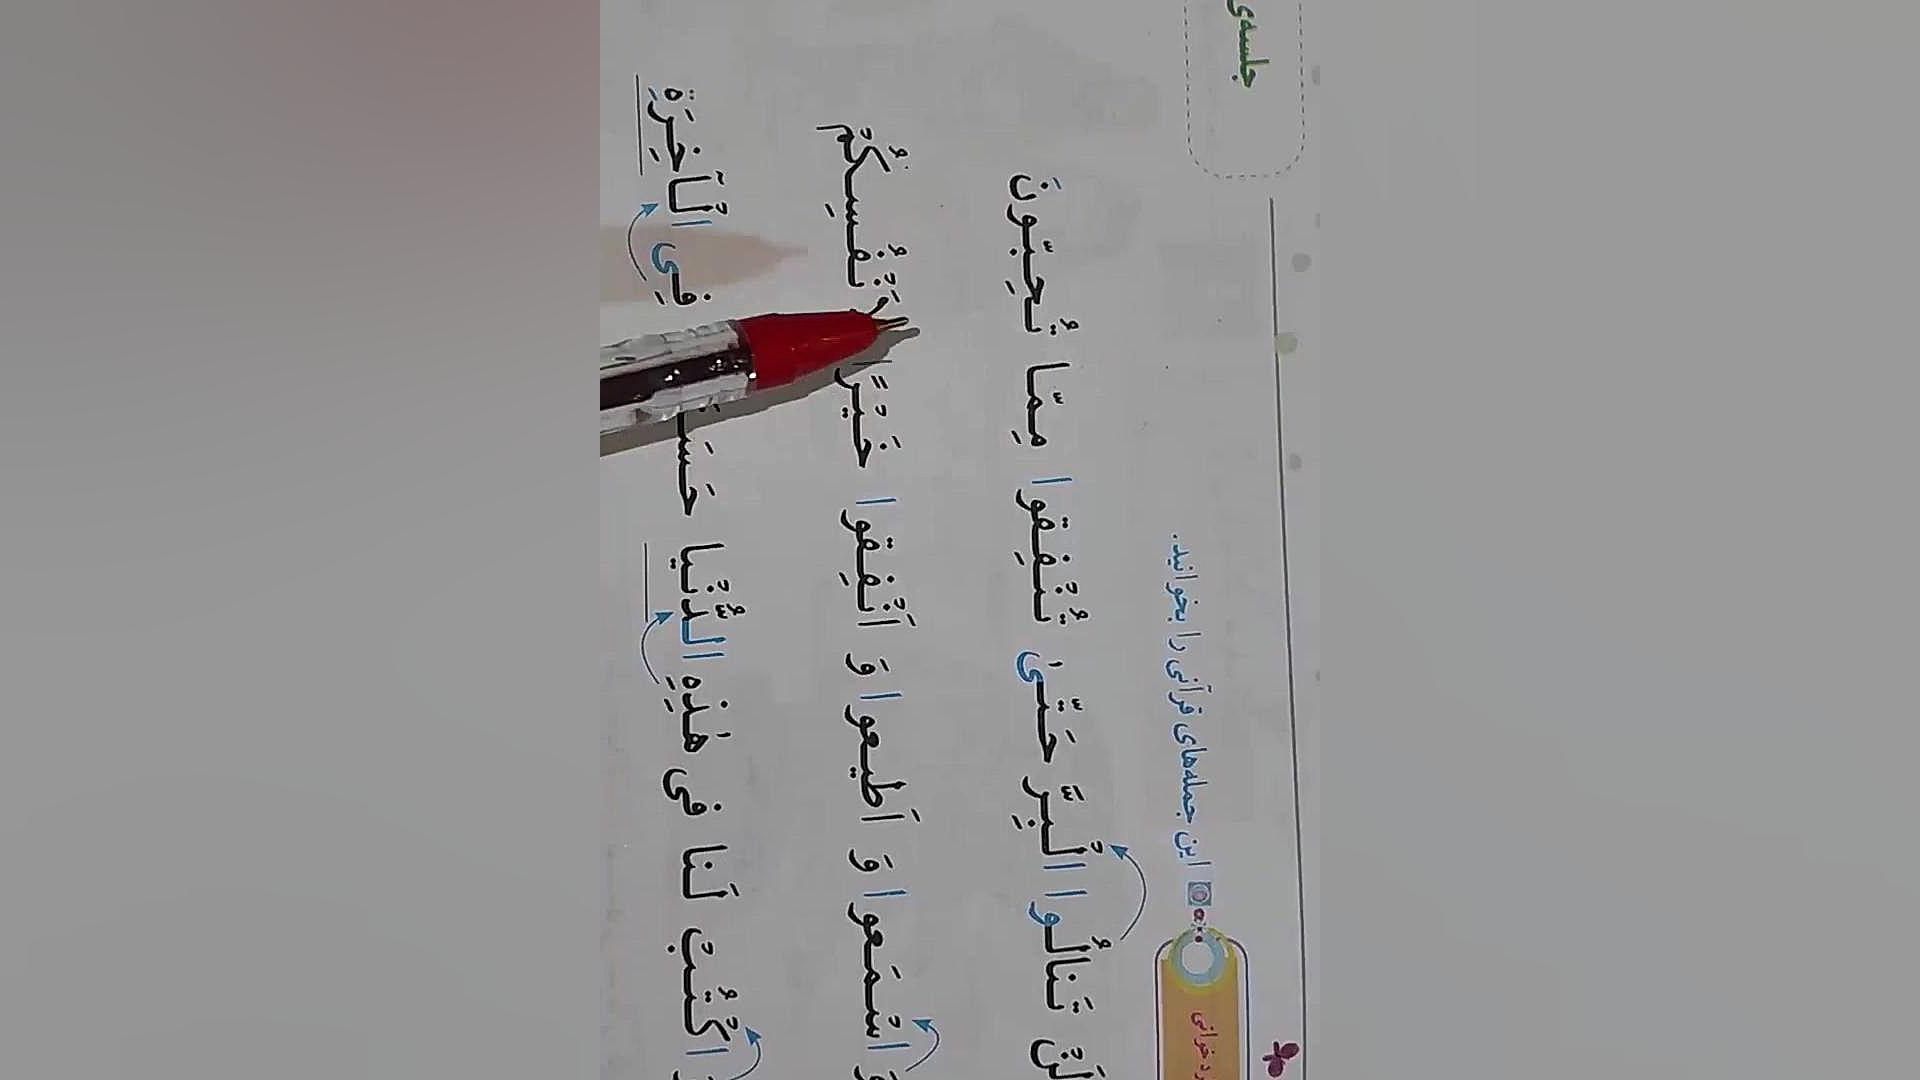 جلسه‌ی
این جمله‌های قرآنی را بخوانید.
لَنْ تَنالُوا الْبِرَّ حَتّىٰ تُنْفِقوا مِمّا تُحِبّونَ
وَ اسْمَعوا وَ اَطیعوا وَ اَنْفِقوا خَیْرًا لِاَنْفُسِكُمْ
وَ اكْتُبْ لَنا فی هٰذِهِ الدُّنْیا فِی الْآخِرَةِ